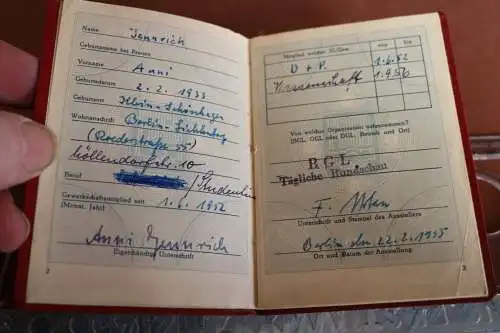 Name Jennrich
Geburtsname bei Frauen
Vorname Anni
Geburtsdatum 2. 2. 1933
Geburtsort Klein-Schönhagen
Wohnanschrift Berlin-Lichtenberg
(Roederstraße 55)
Möllendorfstr. 10
Beruf / Studentin
Gewerkschaftsmitglied seit 1. 6. 1952
(Monat, Jahr)
Anni Jennrich
Eigenhändige Unterschrift
2
Mitglied welcher IG/Gew. von bis
D + V 1.6.52
Wissenschaft 1.9.56
Von welcher Organisation aufgenommen?
(BGL, OGL oder DGL, Betrieb und Ort)
BGL
Tägliche Rundschau
Unterschrift und Stempel des Ausstellers
Berlin den 22.2.1955
Ort und Datum der Ausstellung
3